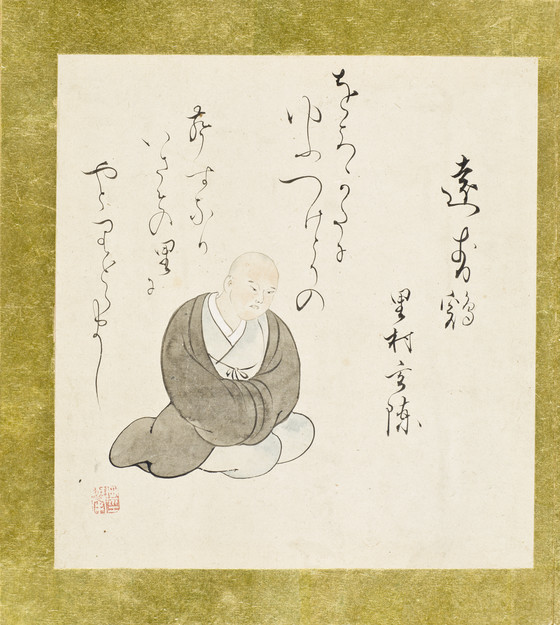 遠
里村玄陳
をちかたに
ゆふつけとりの
声すなり
いさその里に
やとりとらまし